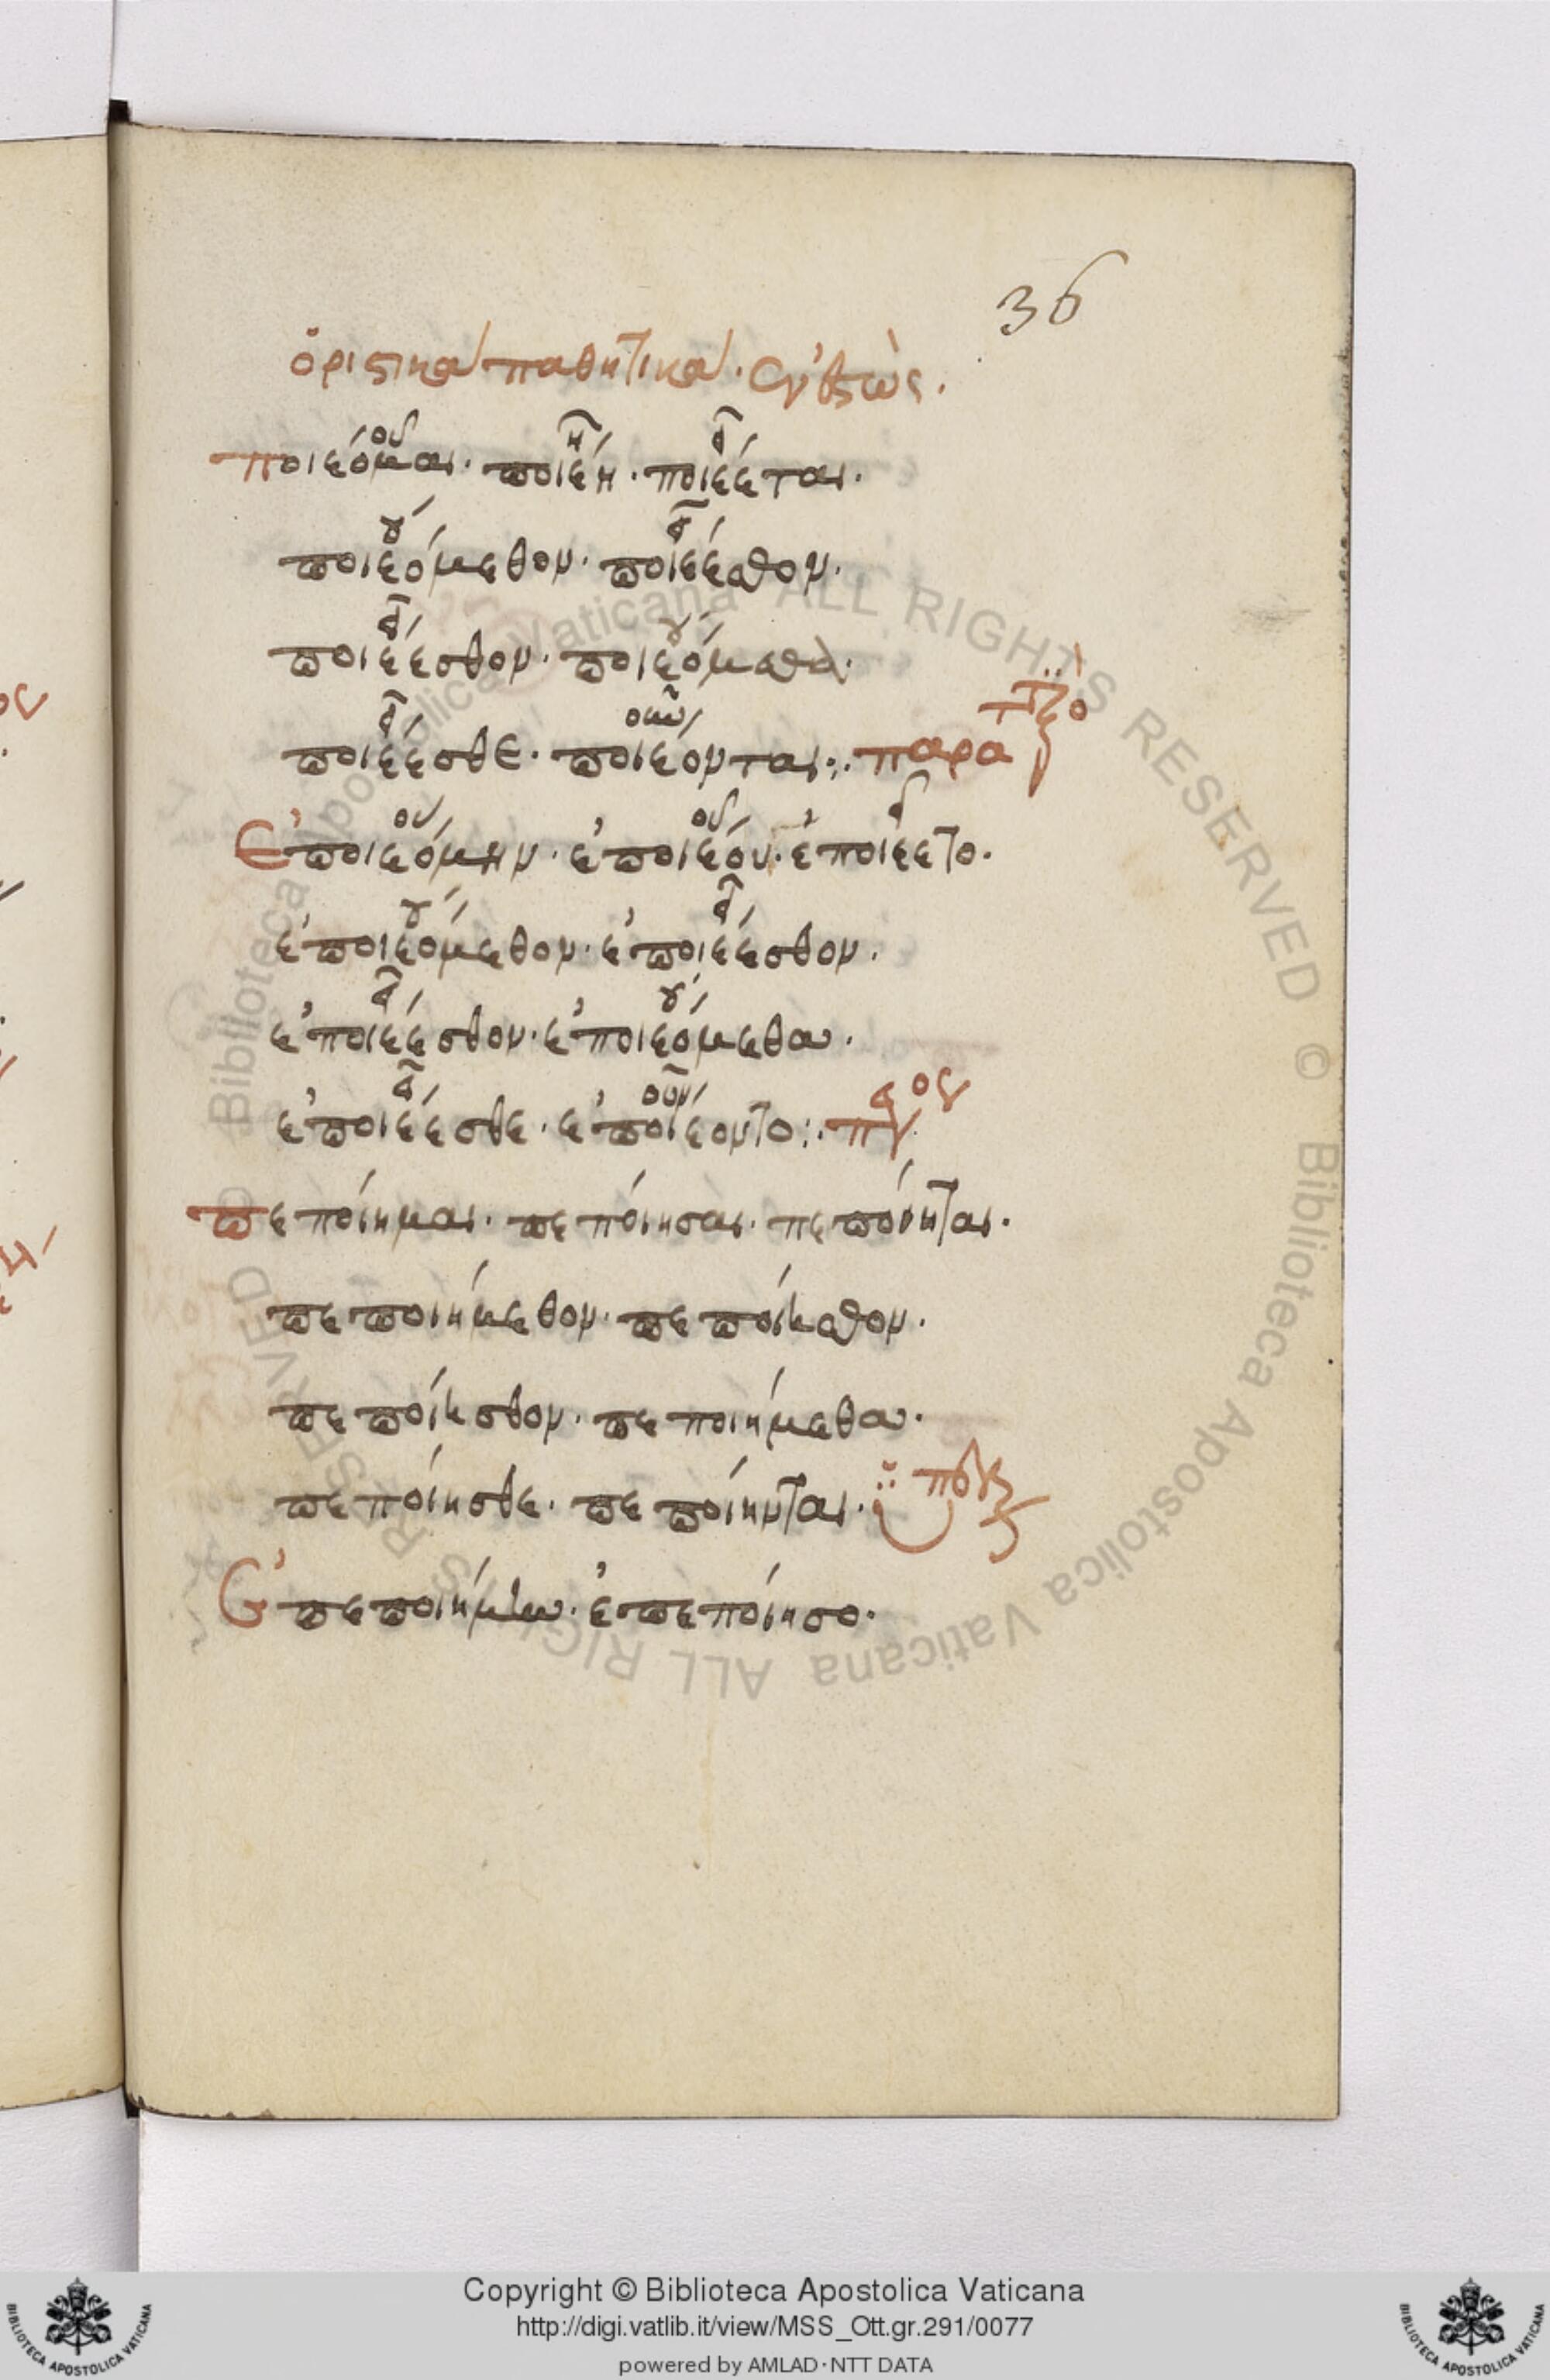 36
ὁριστικὰ παθητικὰ. ἐνεστὼς.
ποιεόμαι. ποιέη. ποιέεται.
ποιεόμεθον. ποιέεσθον.
ποιέεσθον. ποιεόμεθα.
ποιέεσθε. ποιέονται: παρα
ἐποιεόμην. ἐποιέου. ἐποιέετο.
ἐποιεόμεθον. ἐποιέεσθον.
ἐποιέεσθον. ἐποιεόμεθα.
ἐποιέεσθε. ἐποιέοντο:
πεποίημαι. πεποίησαι. πεποίηται.
πεποιήμεθον. πεποίησθον.
πεποίησθον. πεποιήμεθα.
πεποίησθε. πεποίηνται.
ἐπεποιήμην. ἐπεποίησο.
Copyright © Biblioteca Apostolica Vaticana
http://digi.vatlib.it/view/MSS_Ott.gr.291/0077
powered by AMLAD·NTT DATA